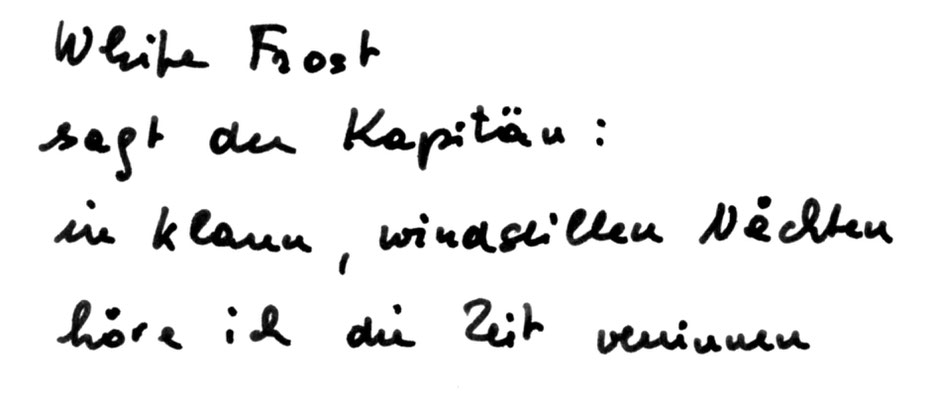 White Frost
sagt der Kapitän:
in klaren, windstillen Nächten
höre ich die Zeit verrinnen